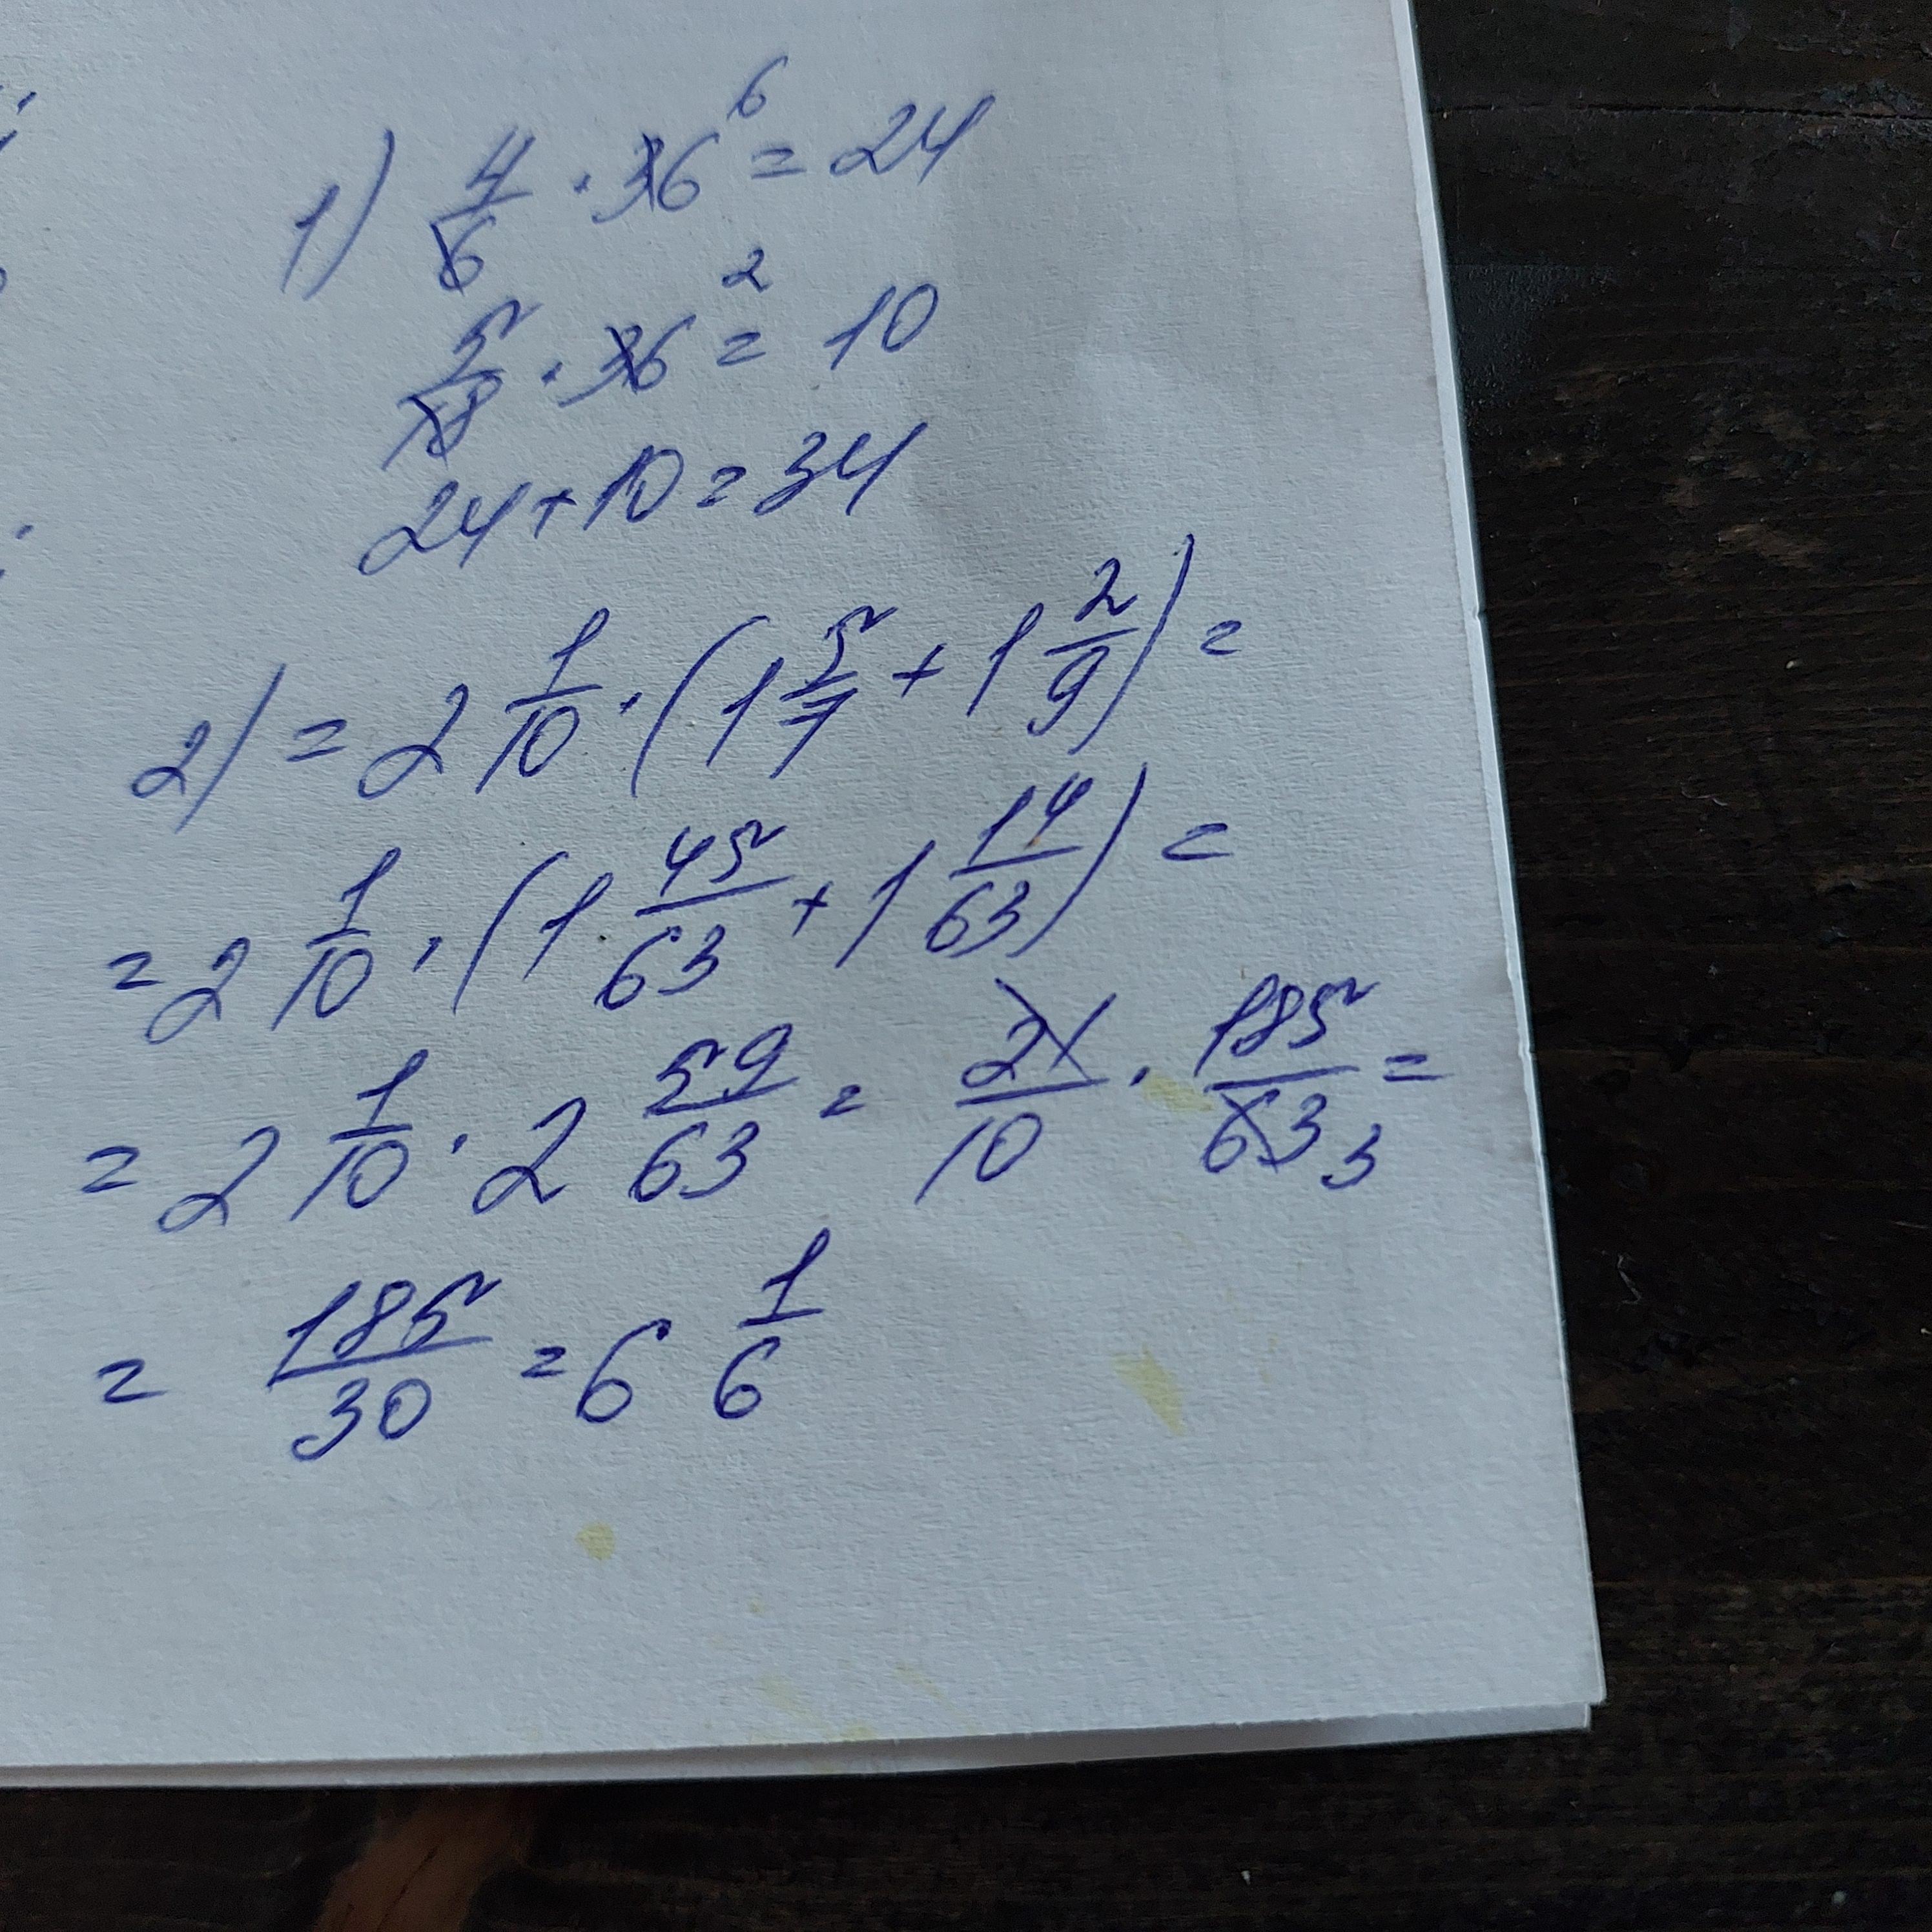 1) 4/6 · 36 6 = 24
5/18 · 36 2 = 10
24 + 10 = 34
2) = 2 1/10 · (1 5/7 + 1 2/9) =
= 2 1/10 · (1 45/63 + 1 14/63) =
= 2 1/10 · 2 59/63 = 21/10 · 185/63 3 =
= 185/30 = 6 1/6